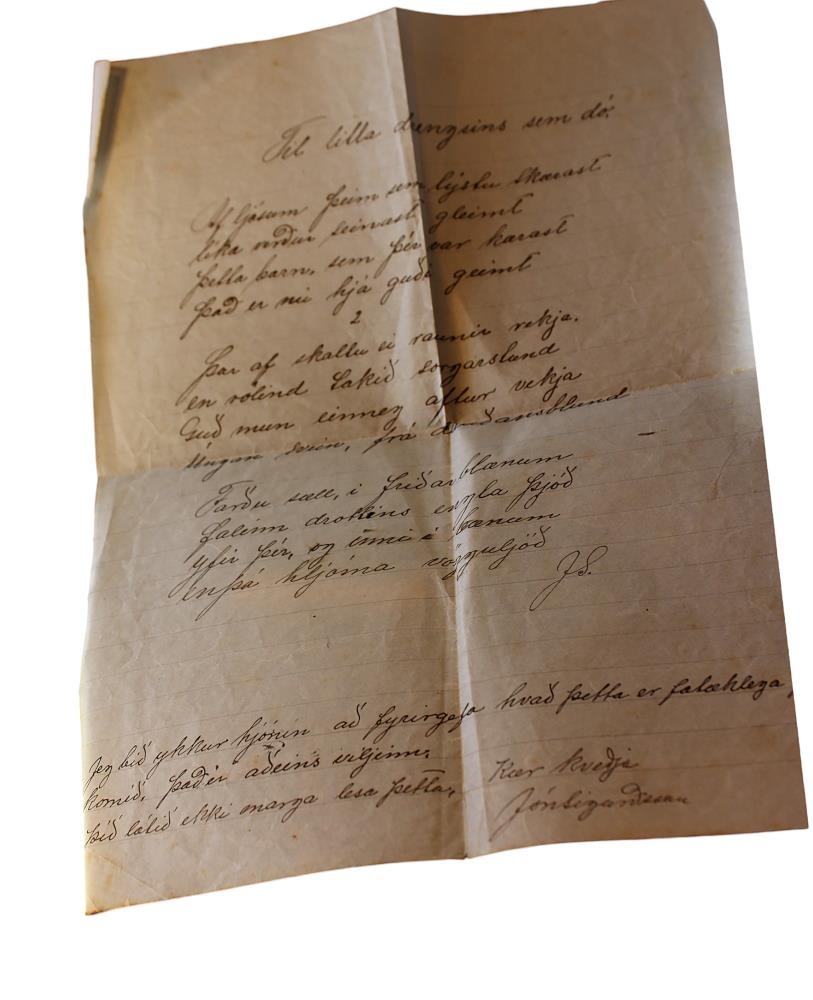 Til litla drengsins sem dó.
Af ljósum þeim sem lýstu skærast
líka verður seinast gleimt
þetta barn, sem þér var kærast
það er nú hjá guði geimt
2
Þar af skaltu ei raunir rekja.
en rólind takið sorgarslund
Guð mun einneg aftur vekja
úngan svein, frá dauðansblund
Farðu sæll, í friðarblænum
falinn drottins engla þjóð
yfir þér, og inni í bænum
enþá hljóma vögguljóð
J S.
Jeg bið ykkur hjónin að fyrirgefa hvað þetta er fatæklega
komið, það er aðeins viljinn.
þið látið ekki marga lesa þetta.
Kær kveðja
Jón Sigurðsson